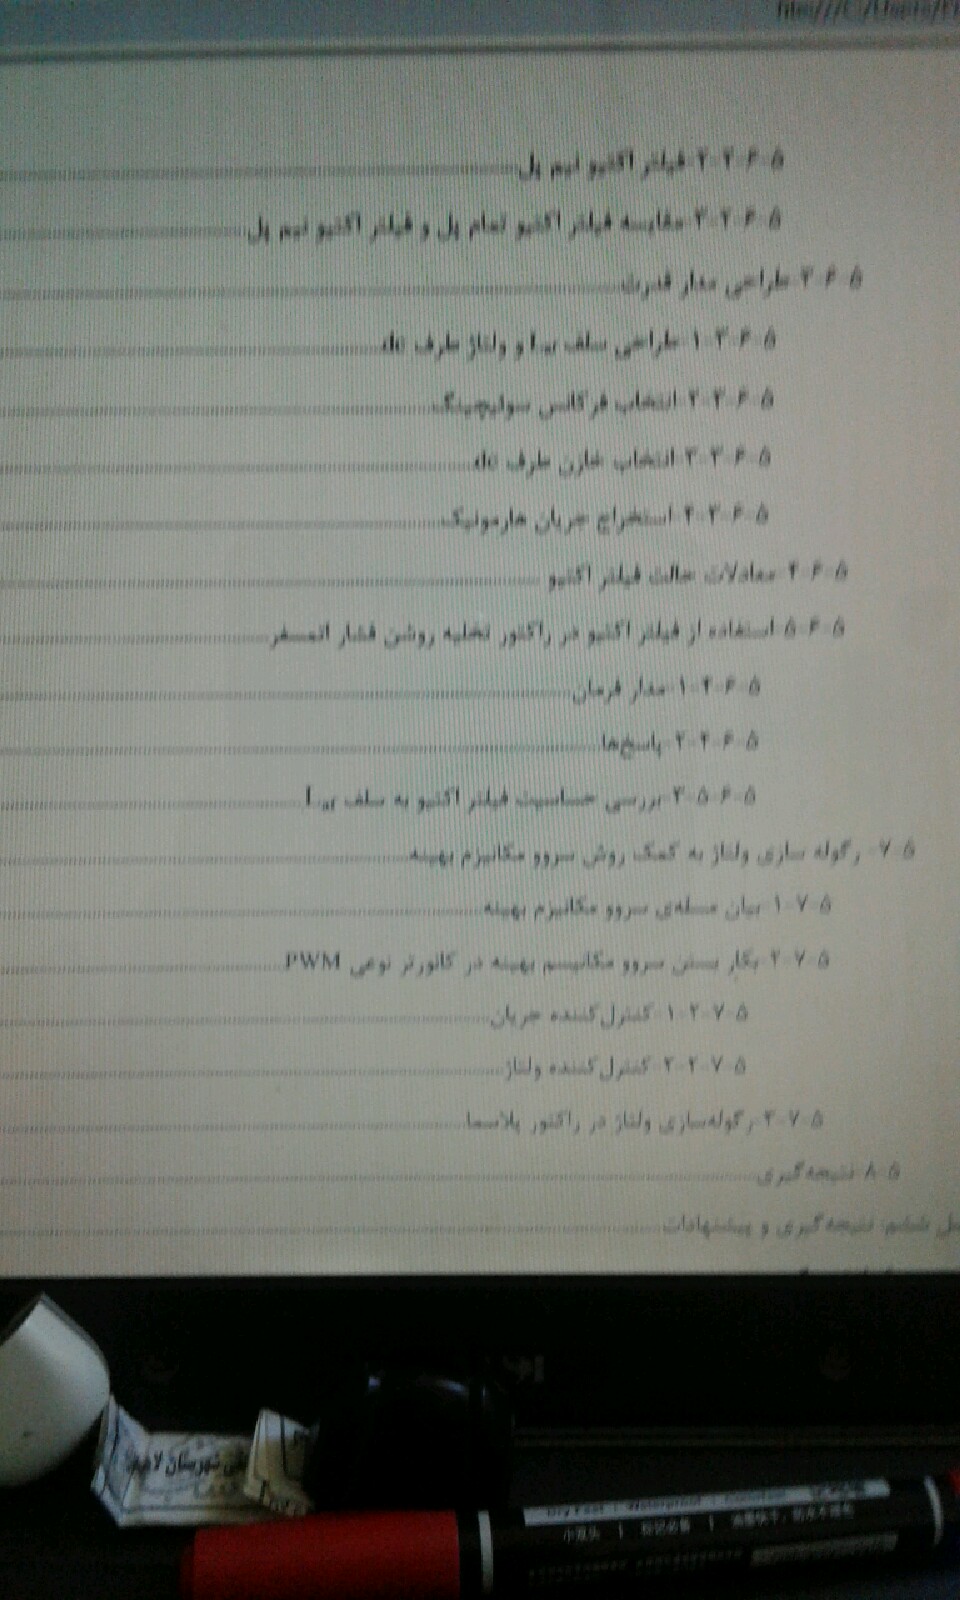 file:///C:/Users/
۵-۶-۲-۲ فیلتر اکتیو نیم پل
۵-۶-۲-۳ مقایسه فیلتر اکتیو تمام پل و فیلتر اکتیو نیم پل
۵-۶-۳ طراحی مدار قدرت
۵-۶-۳-۱ طراحی سلف و ولتاژ طرف dc
۵-۶-۳-۲ انتخاب فرکانس سوئیچینگ
۵-۶-۳-۳ انتخاب خازن طرف dc
۵-۶-۳-۴ استخراج جریان هارمونیک
۵-۶-۴ معادلات حالت فیلتر اکتیو
۵-۶-۵ استفاده از فیلتر اکتیو در راکتور تخلیه روشن فشار اتمسفر
۵-۶-۴-۱ مدار فرمان
۵-۶-۴-۲ پاسخ‌ها
۵-۶-۵-۳ بررسی حساسیت فیلتر اکتیو به سلف
۵-۷- رگوله سازی ولتاژ به کمک روش سروو مکانیزم بهینه
۵-۷-۱ بیان مسله‌ی سروو مکانیزم بهینه
۵-۷-۲ بکار بستن سروو مکانیسم بهینه در کانورتر نوعی PWM
۵-۷-۲-۱ کنترل‌کننده جریان
۵-۷-۲-۲ کنترل‌کننده ولتاژ
۵-۷-۳ رگوله‌سازی ولتاژ در راکتور پلاسما
۵-۸ نتیجه‌گیری
ششم: نتیجه‌گیری و پیشنهادات
شهرستان
小双头 | 标记必备 |